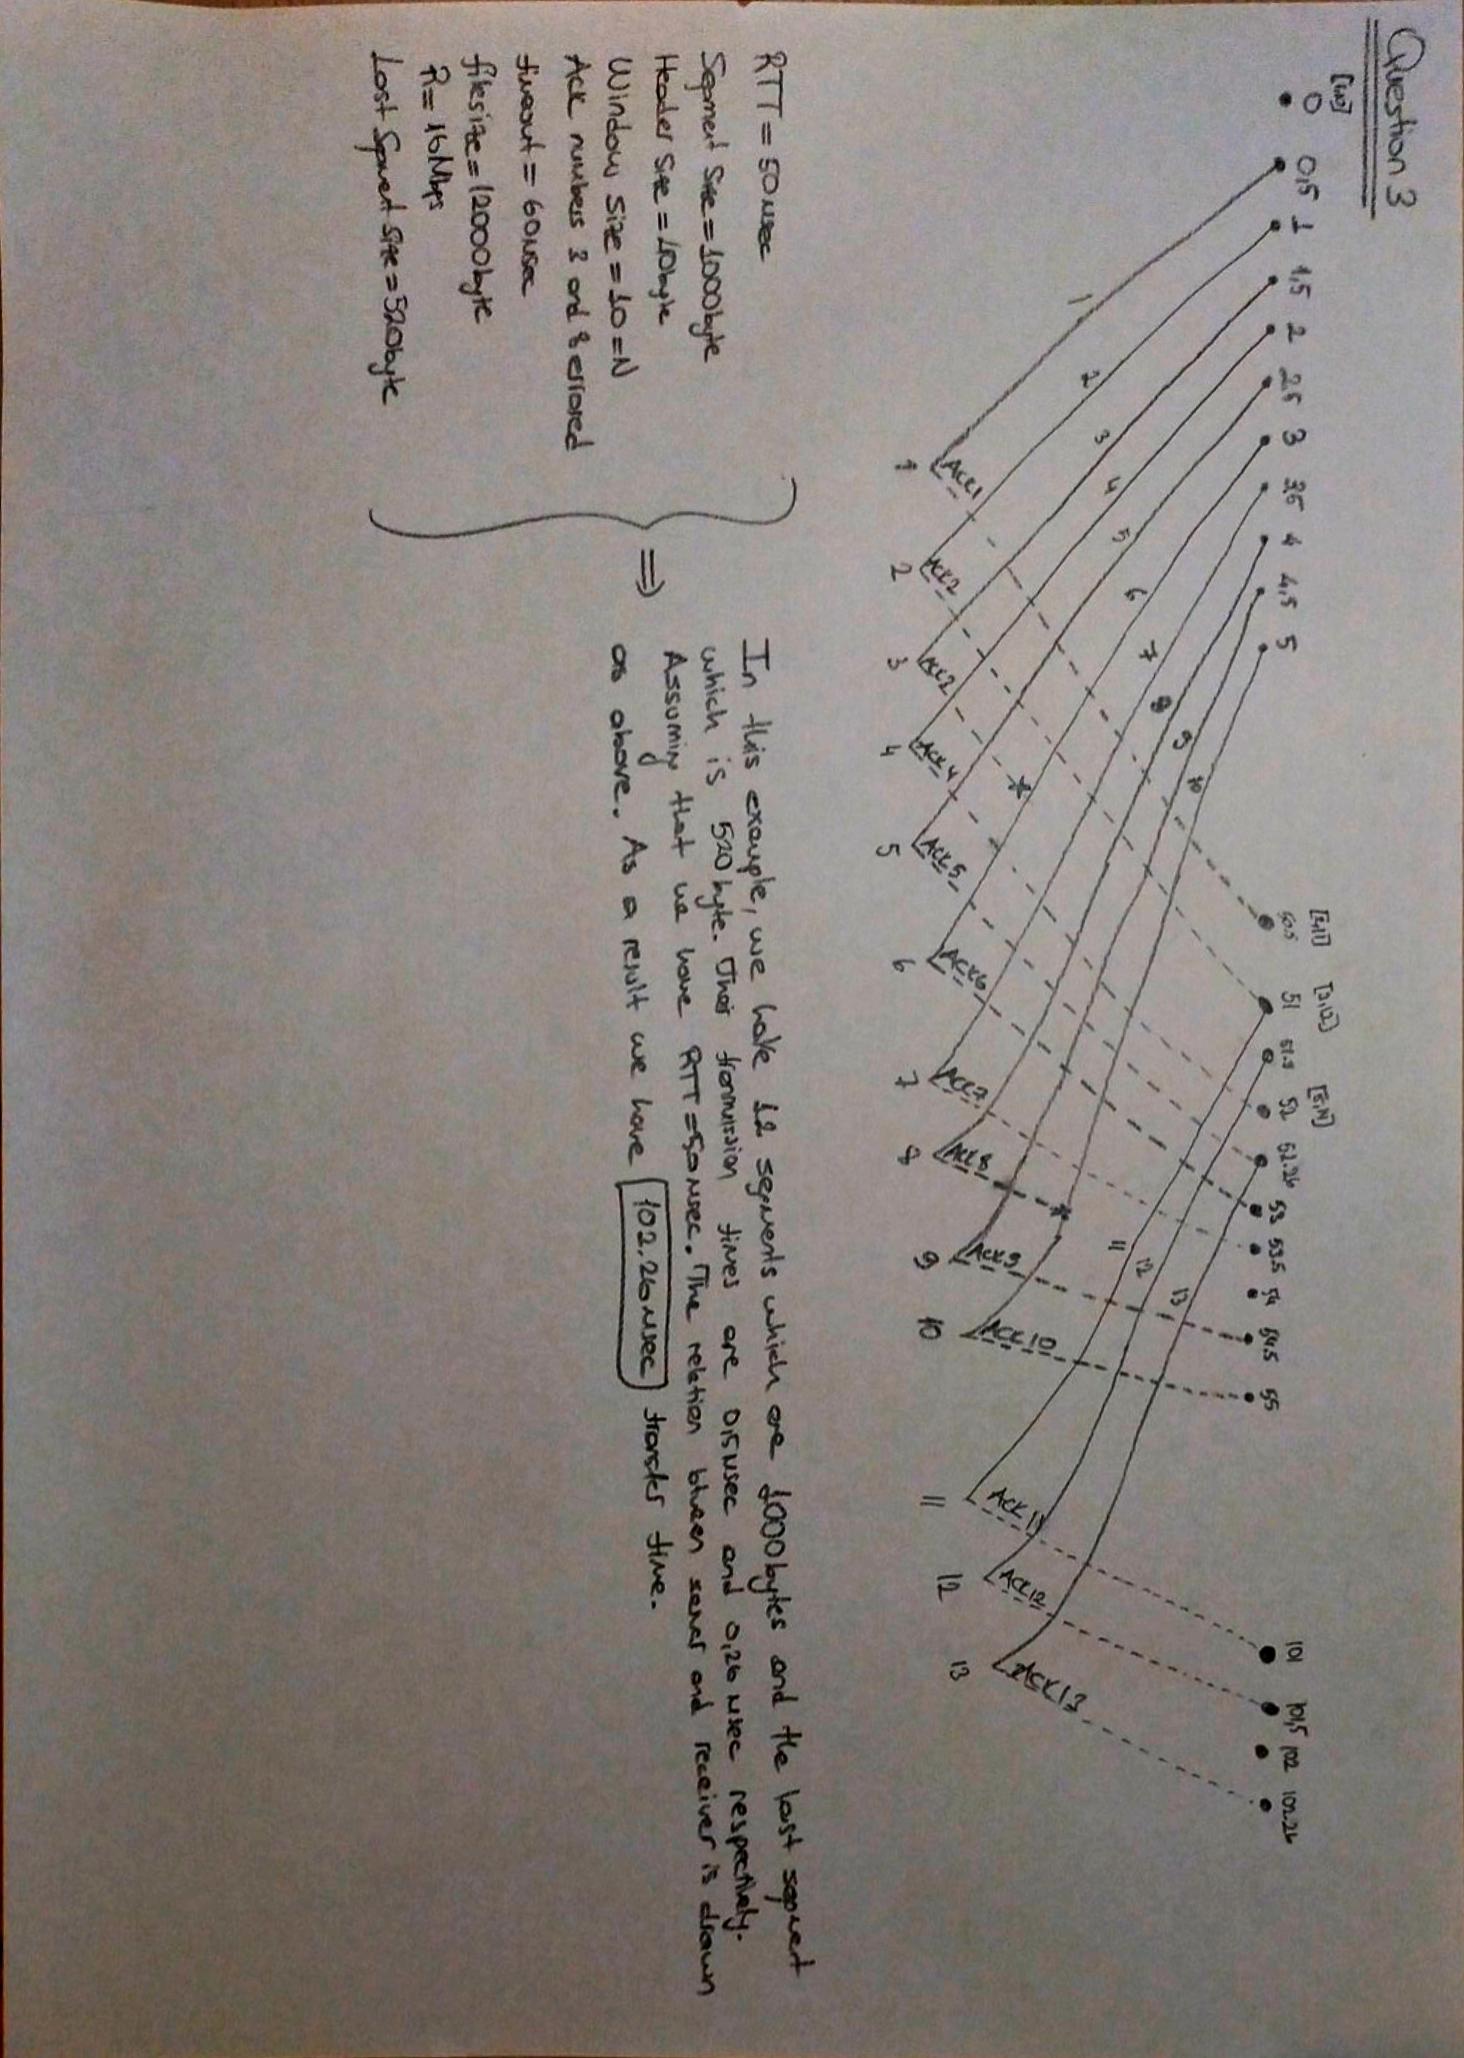 Question 3
[1,10] [2,11] [3,12] [5,14]
0 0,5 1 1,5 2 2.5 3 3,5 4 4,5 5 50.5 51 51.5 52 52.26 53 53.5 54 54.5 55 101 101,5 102 102.26
1 2 3 4 5 6 7 8 9 10 11 12 13
Ack1 Ack2 Ack2 Ack4 Ack5 Ack6 Ack7 Ack8 Ack9 Ack10 Ack11 Ack12 Ack13
1 2 3 4 5 6 7 8 9 10 11 12 13
RTT = 50 msec
Segment Size = 1000 byte
Header Size = 40 byte
Window Size = 10 = N
Ack numbers 3 and 8 errored
timeout = 60 msec
filesize = 12000 byte
R = 16 Mbps
Last Segment Size = 520 byte
In this example, we have 12 segments which are 1000 bytes and the last segment
which is 520 byte. Their transmission times are 0,5 msec and 0,26 msec respectively.
Assuming that we have RTT = 50 msec. The relation btween sever and receiver is drawn
as above. As a result we have 102.26 msec transfer time.